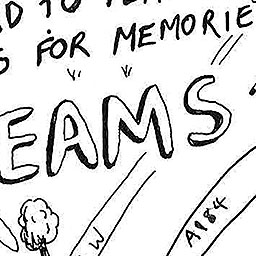 FOR MEMORIE
EAMS
A184
W